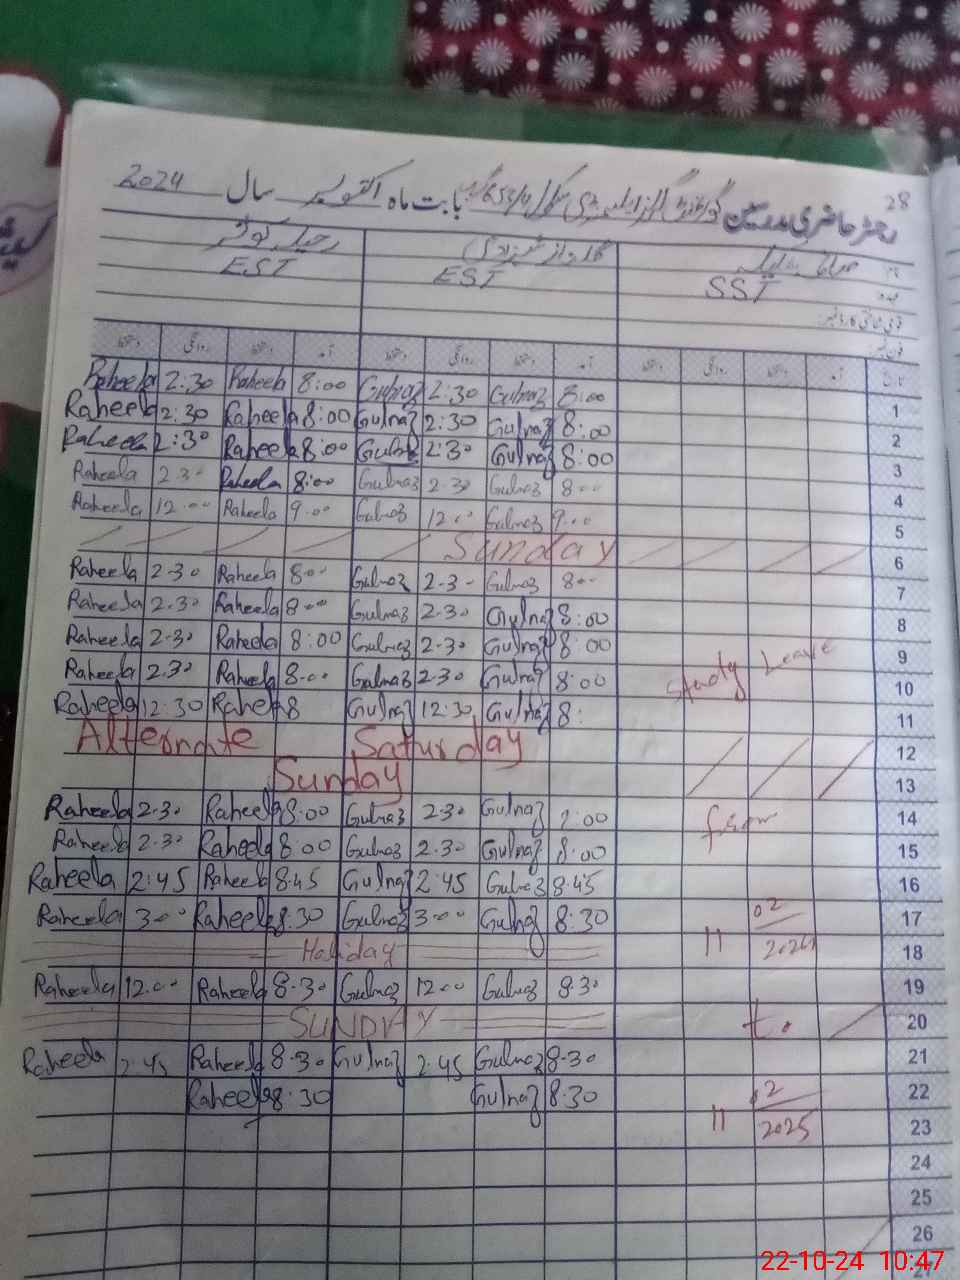 28
رجسٹر حاضری مدرسین گورنمنٹ گرلز ایلیمنٹری سکول بابت ماہ اکتوبر سال 2024
نام
عہدہ SST EST EST
قومی شناختی کارڈ نمبر
Raheela 2:30 Raheela 8:00 Gulnaz 2:30 Gulnaz 8:00 1
Raheela 2:30 Raheela 8:00 Gulnaz 2:30 Gulnaz 8:00 2
Raheela 2:30 Raheela 8:00 Gulnaz 2:30 Gulnaz 8:00 3
Raheela 2.30 Raheela 8:00 Gulnaz 2.30 Gulnaz 8.00 4
Raheela 12.00 Raheela 9.00 Gulnaz 12.00 Gulnaz 9.00 5
Sunday 6
Raheela 2-30 Raheela 8.00 Gulnaz 2-30 Gulnaz 8.00 7
Raheela 2.30 Raheela 8.00 Gulnaz 2.30 Gulnaz 8:00 8
Raheela 2-30 Raheela 8:00 Gulnaz 2-30 Gulnaz 8:00 9
Raheela 2.30 Raheela 8.00 Gulnaz 2.30 Gulnaz 8:00 Study Leave 10
Raheela 12:30 Raheela 8 Gulnaz 12:30 Gulnaz 8: 11
Alternate Saturday 12
Sunday 13
Raheela 2.30 Raheela 8:00 Gulnaz 2.30 Gulnaz from 14
Raheela 2.30 Raheela 8:00 Gulnaz 2.30 Gulnaz 8:00 15
Raheela 2:45 Raheela 8.45 Gulnaz 2:45 Gulnaz 8.45 16
Raheela 3.00 Raheela 8.30 Gulnaz 3.00 Gulnaz 8:30 02 17
Holiday 11 18
Raheela 12.00 Raheela 8.30 Gulnaz 12.00 Gulnaz 8.30 19
SUNDAY to 20
Raheela 2:45 Raheela 8.30 Gulnaz 2:45 Gulnaz 8.30 21
Raheela 8:30 Gulnaz 8:30 02 22
11 2025 23
24
25
26
27
22-10-24 10:47